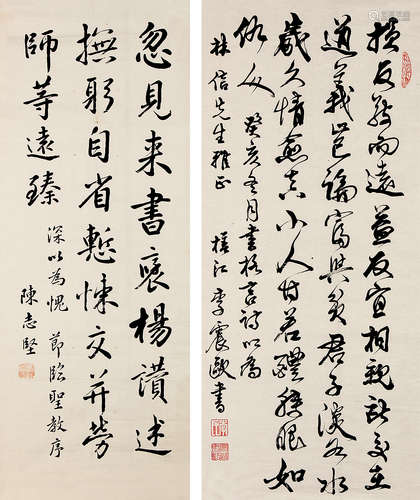 損友敬而遠益友宜相親所交在
道義豈論富與貧君子淡如水
歲久情愈真小人甘若醴轉眼如
仇人 癸亥冬月書格言詩以為
信先生雅正 江 李震歐書
忽見来書褒楊讚述
撫躬自省慙悚交并勞
師等遠臻
深以為愧 節臨聖教序
陳志堅